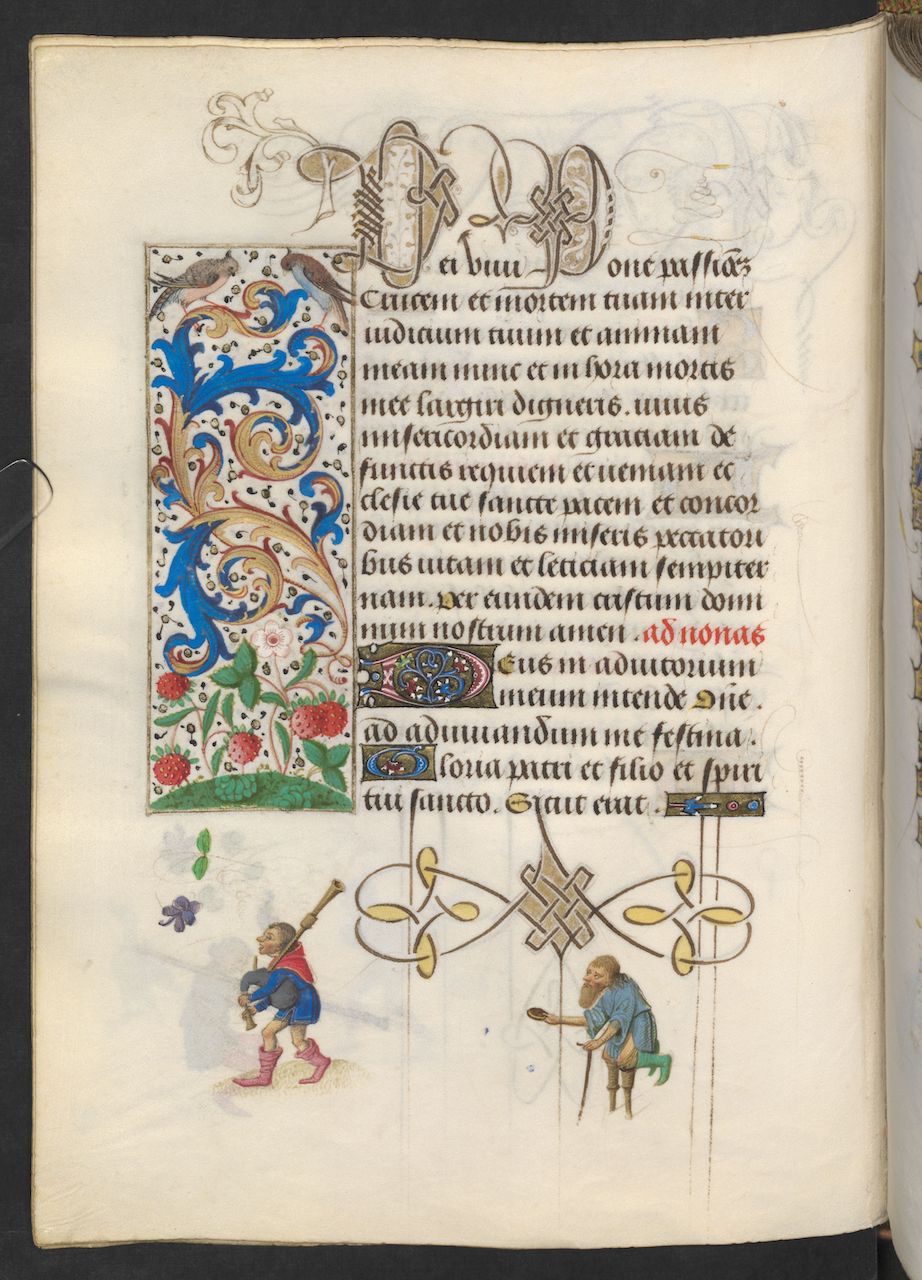 ei viui pone passionē
Crucem et mortem tuam inter
iudicium tuum et animam
meam nunc et in hora mortis
mee largiri digneris. viuis
misericordiam et graciam de
functis requiem et ueniam ec
clesie tue sancte pacem et concor
diam et nobis miseris peccatori
bus uitam et leticiam sempiter
nam. per eundem cristum domi
num nostrum amen. ad nonas
Deus in adiutorium
meum intende Dñe.
ad adiuuandum me festina.
Gloria patri et filio et spiri
tui sancto. Sicut erat.